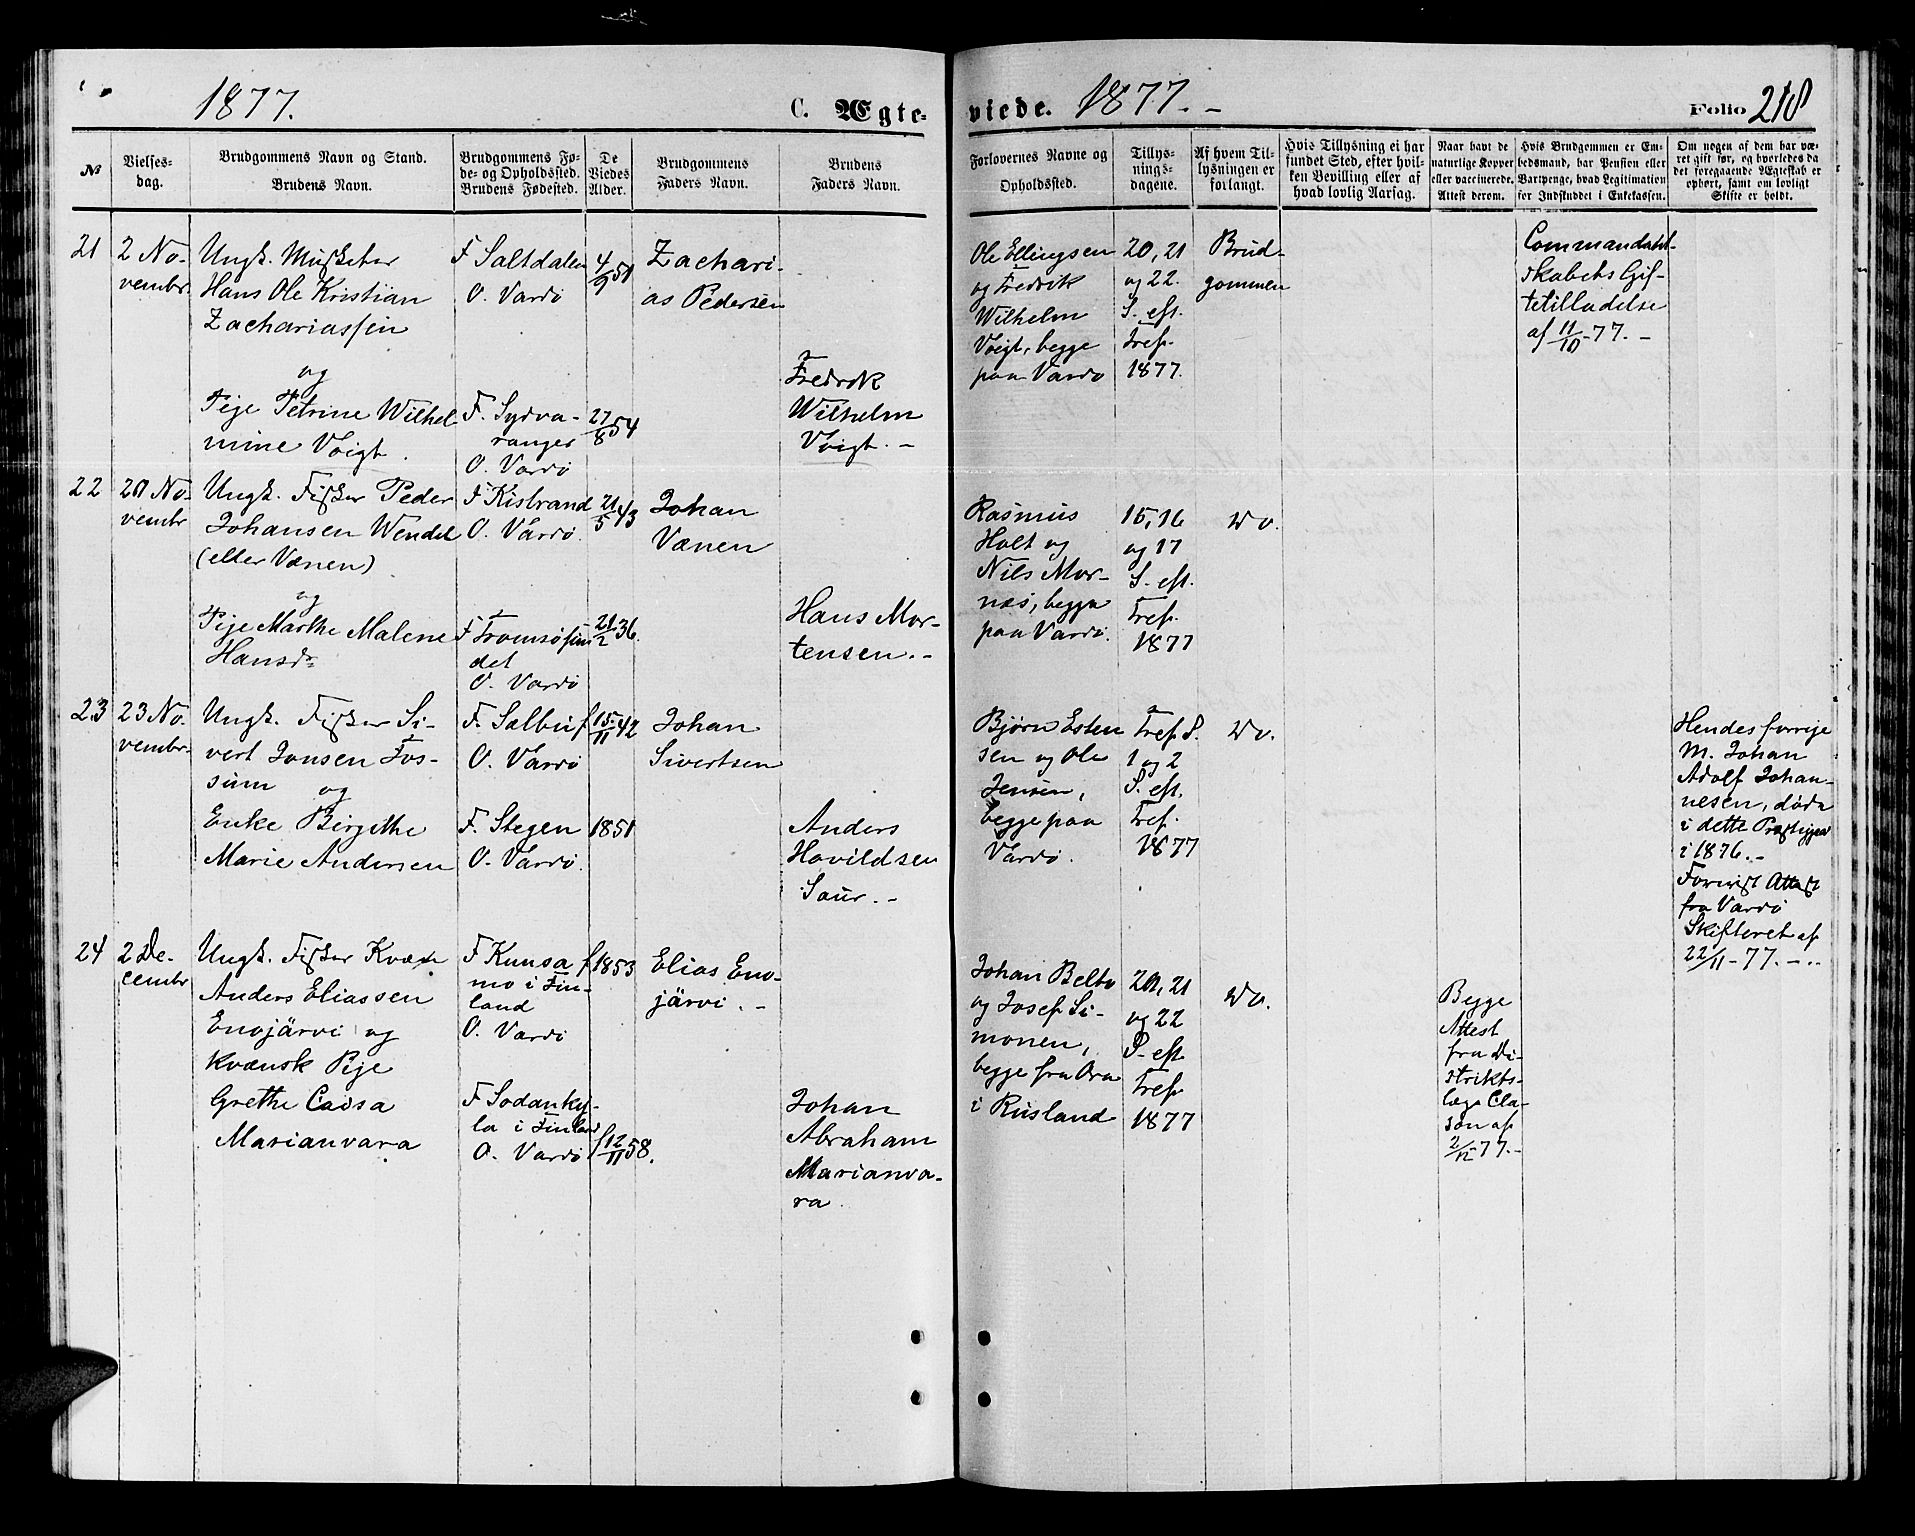 1877.
C. Ægte-
viede. 1877. -
Folio 218
№
Vielses-
dag.
Brudgommens Navn og Stand.
Brudens Navn.
Brudgommens Fø-
de- og Opholdssted.
Brudens Fødested.
De
Viedes
Alder.
Brudgommens
Faders Navn.
Brudens
Faders Navn.
Forlovernes Navne og
Opholdssted.
Tillys-
nings-
dagene.
Af hvem Til-
lysningen er
forlangt.
Hvis Tillysning ei har
fundet Sted, efter hvil-
ken Bevilling eller af
hvad lovlig Aarsag.
Naar havt de
naturlige Kopper
eller vaccinerede.
Attest derom.
Hvis Brudgommen er Em-
bedsmand, har Pension eller
Vartpenge, hvad Legitimation
for Indskuddet i Enkekassen.
Om nogen af dem har væ-
ret gift før, og hvorledes da
det foregaaende Ægteskab er
ophørt, samt om lovligt
Skifte er holdt.
21
2 No-
vembr
Ungk. Musketer
Hans Ole Kristian
Zachariassen
og
Pige Petrine Wilhel
mine Voigt.
F Saltdalen
O. Vardö
F. Sydva-
ranger
O. Vardö
4/9 51
27/8 54
Zachari-
as Pedersen
Fredrik
Wilhelm
Voigt. -
Ole Ellingsen
og Fredrik
Wilhelm
Voigt, begge
paa Vardö
20, 21
og 22.
S. eft.
Tref.
1877.
Brud-
gommen
Commandant-
skabets Gif-
tetilladelse
af 11/10-77. -
22
20 No-
vembr
Ungk. Fisker Peder
Johansen Wendel
(eller Vænen)
og
Pige Marthe Malene
Hansdr
F Kistrand
O. Vardö.
F Tromsösun
det
O. Vardö
21/5 43
21/2 36.
Johan
Vænen
Hans Mor-
tensen. -
Rasmus
Holt og
Nils Mor-
næs, begge
paa Vardö.
15, 16
og 17
S. eft.
Tref.
1877
Do.
23
23 No-
vembr.
Ungk. Fisker Si-
vert Jonsen Fos-
sum og
Enke Birgithe
Marie Andersen
F. Sælbu
O. Vardö
F. Stegen
O. Vardö.
f 15/11 42
1851
Johan
Sivertsen
Anders
Hovildsen
Saur. -
Bjørn Esten
sen og Ole
Jensen,
begge paa
Vardö.
Tref S.
1 og 2
S. eft.
Tref.
1877
Do.
Hendes forrige
M. Johan
Adolf Johan-
nesen, døde
i dette Præstigjæld
i 1876. -
Forevist Attest
fra Vardö
Skifteret af
22/11-77. -
24
2 De-
cembr
Ungk. Fisker Kvæn
Anders Eliassen
Enojärvi og
Kvænsk Pige
Grethe Caisa
Marianvara
F Kunsa
mo i Fin-
land
O. Vardö
F Sodanky-
la i Finland
O. Vardö
f 1853
f 12/11 58.
Elias Eno-
järvi. -
Johan
Abraham
Marianva-
ra.
Johan Belto
og Josef Si-
monen,
begge fra Ora
i Rusland
20, 21
og 22
S. eft.
Tref
1877
Do.
Begge
Attest
fra Di-
strikts-
læge Cla-
son af
2/12 77. -